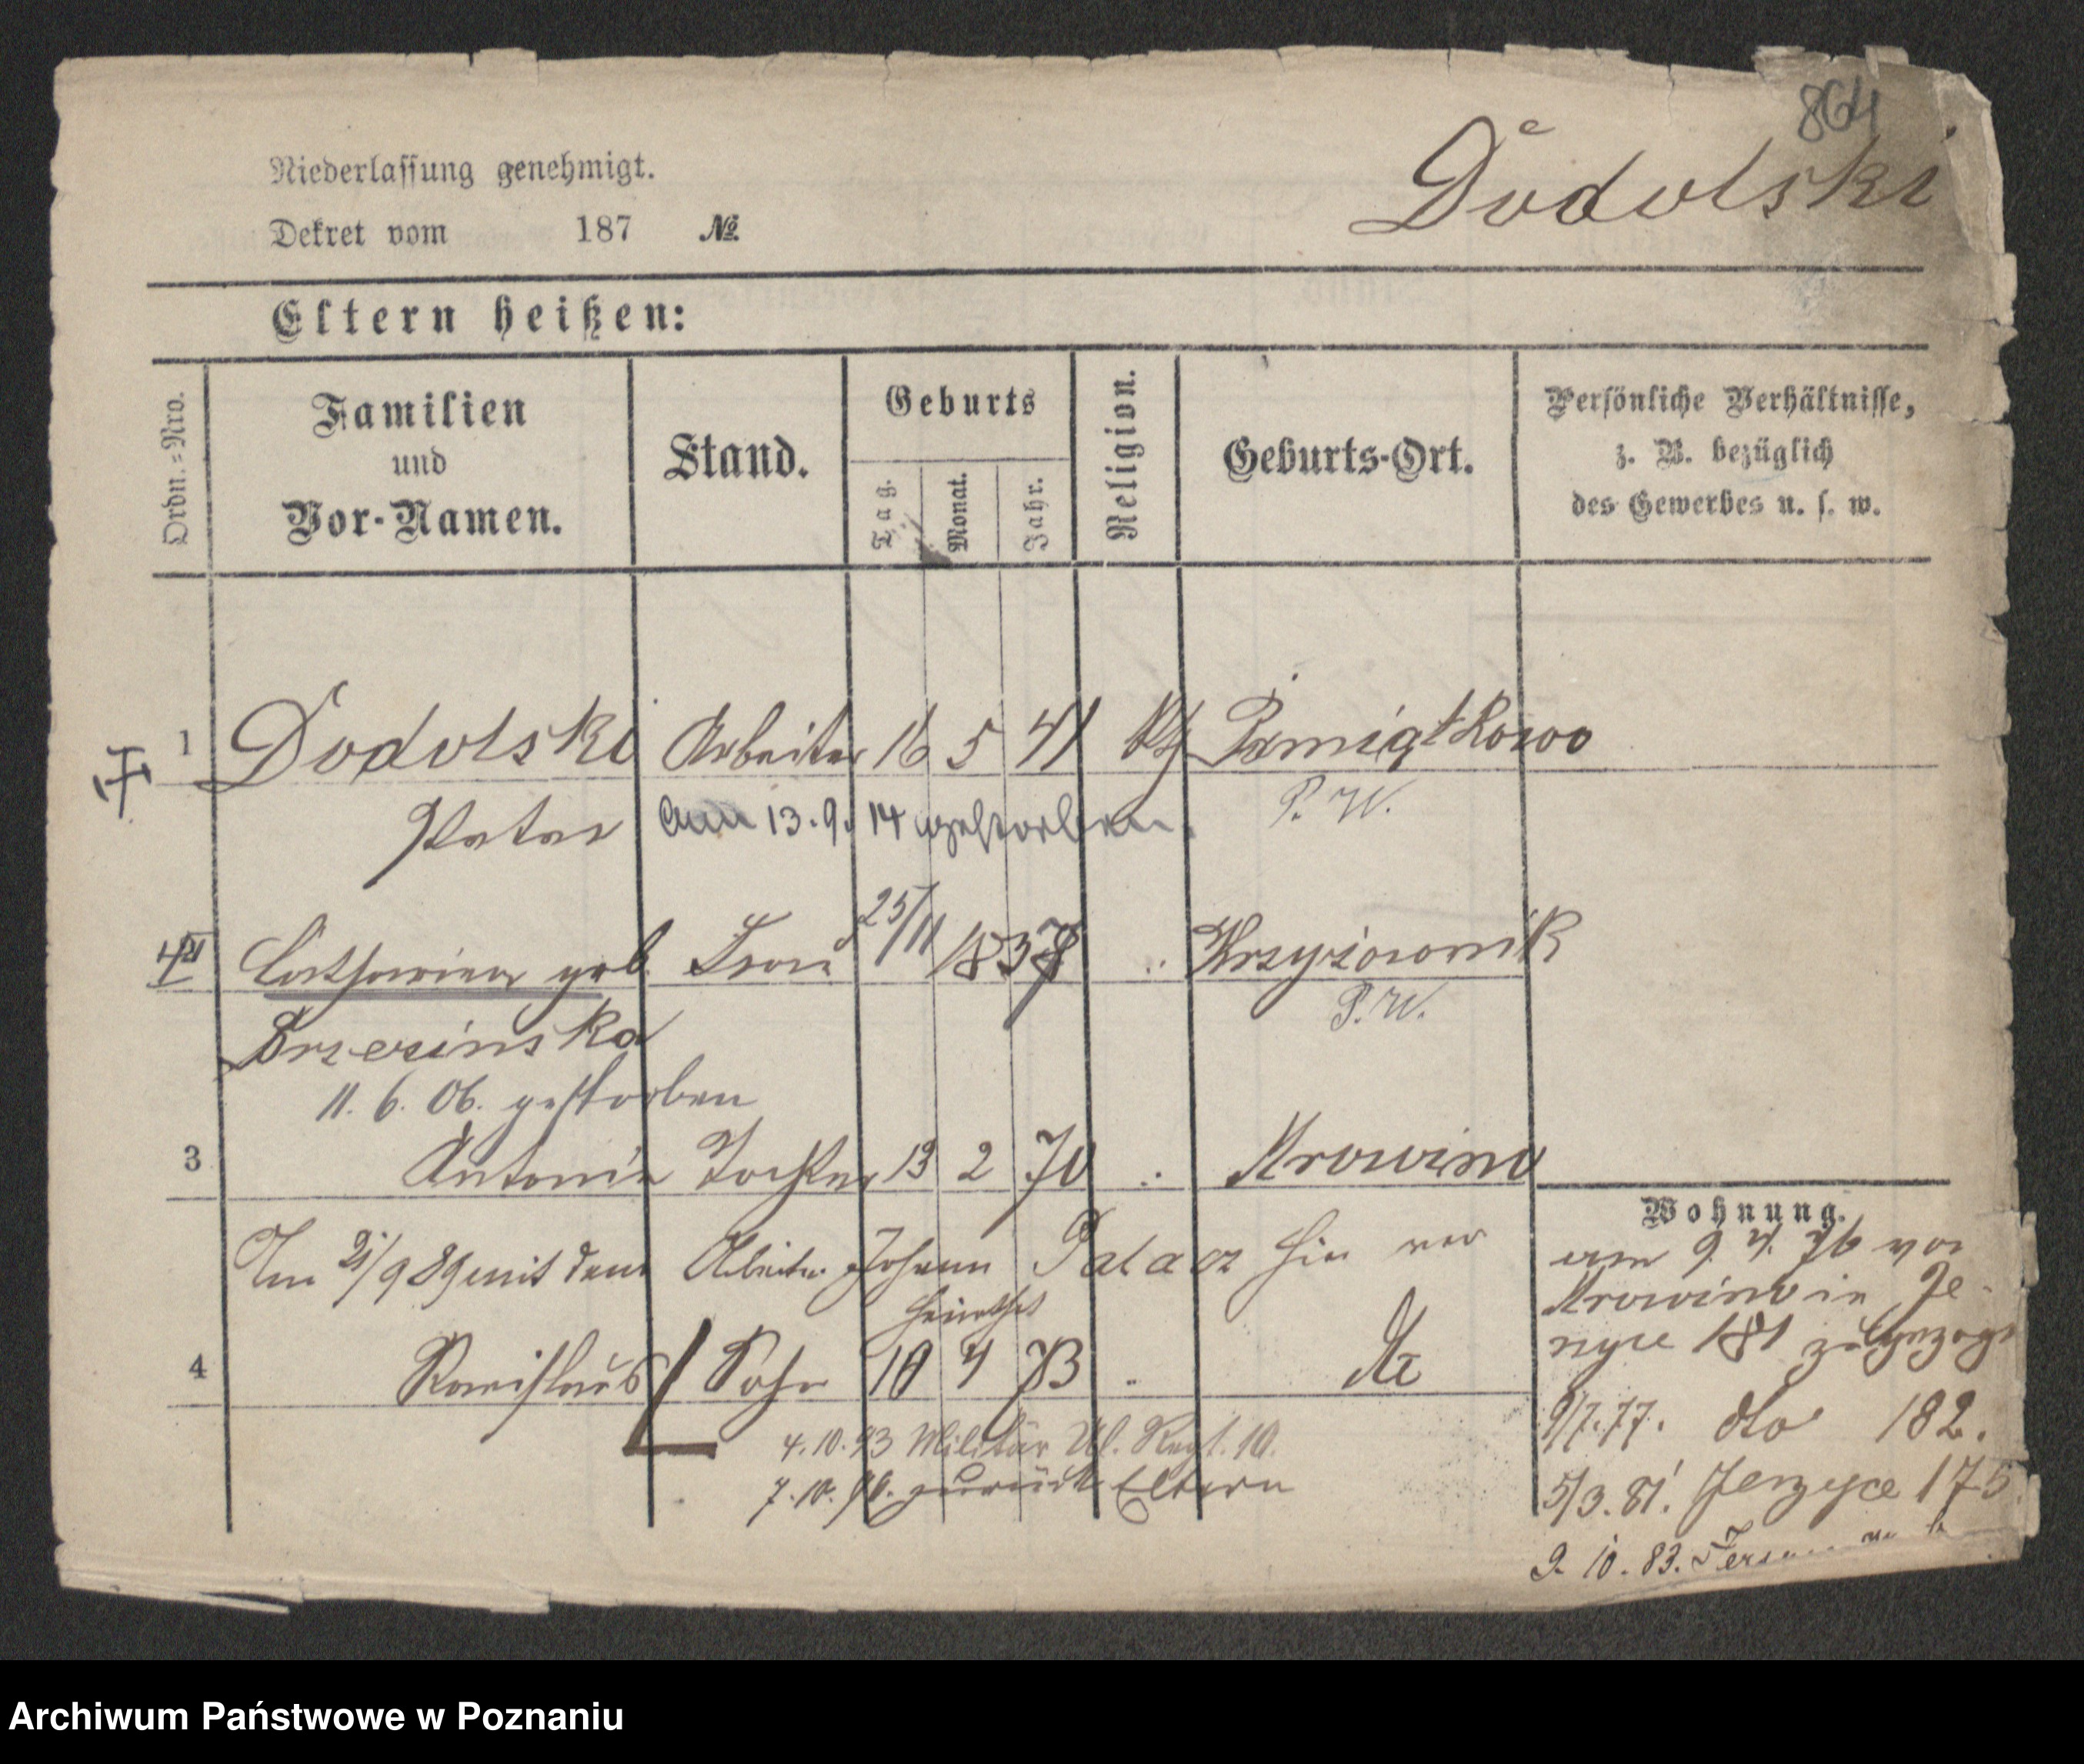 864
Dodolski
Niederlassung genehmigt.
Dekret vom 187 №
Eltern heißen:
Ordn.-Nro.
Familien
und
Vor-Namen.
Stand.
Geburts
Tag.
Monat.
Jahr.
Religion.
Geburts-Ort.
Persönliche Verhältnisse,
z. B. bezüglich
des Gewerbes u. s. w.
1 Dodolski Arbeiter 16 5 41
Peter am 13.9.14 gestorben. P.W.
Catharina geb. Frau 25/11 1837
P.W.
Brzezinska
11.6.06. gestorben
3 Antonie Tochter 13 2 70 Krowino
mit dem Arbeiter Johann Palacz hier ver
heirathet
4 Sohn 10 4 73
4.10.93 Militär Ul. Regt. 10.
7.10. zurück Eltern
Wohnung.
am 9. 4. 76 von
Krowino in Je-
rzyce 181
9/7.77. dto 182.
5/3.81. Jerzyce 175
9.10.83.
Archiwum Państwowe w Poznaniu